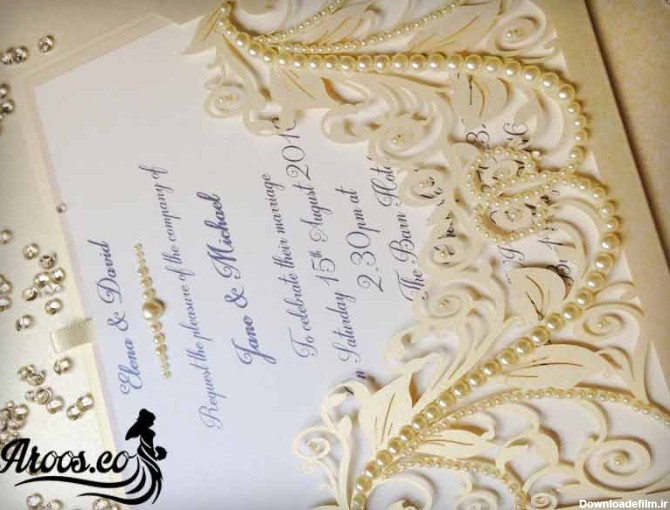 Elena & David
Request the pleasure of the company of
Jane & Michael
To celebrate their marriage
Saturday 15th August
2.30pm at
The Barn
Aroos.co
Downloadefilm.ir